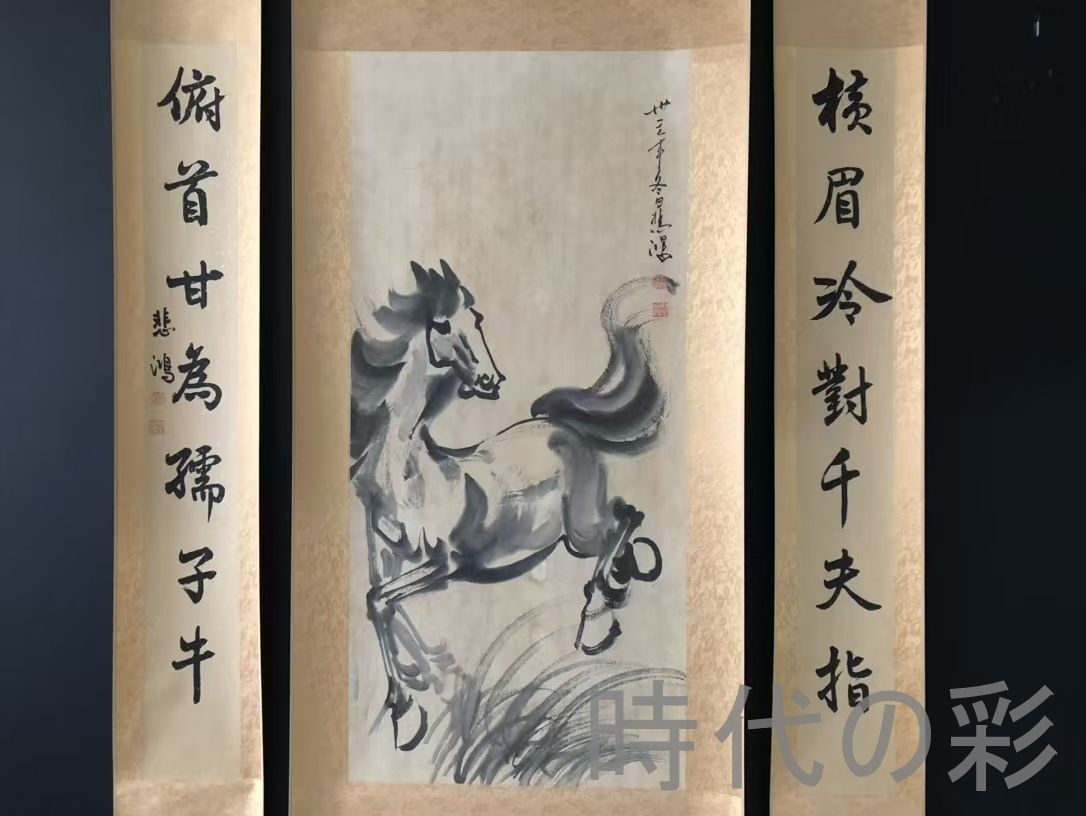 横眉冷對千夫指
卅三年冬日悲鴻
俯首甘為孺子牛
悲鴻
時代の彩